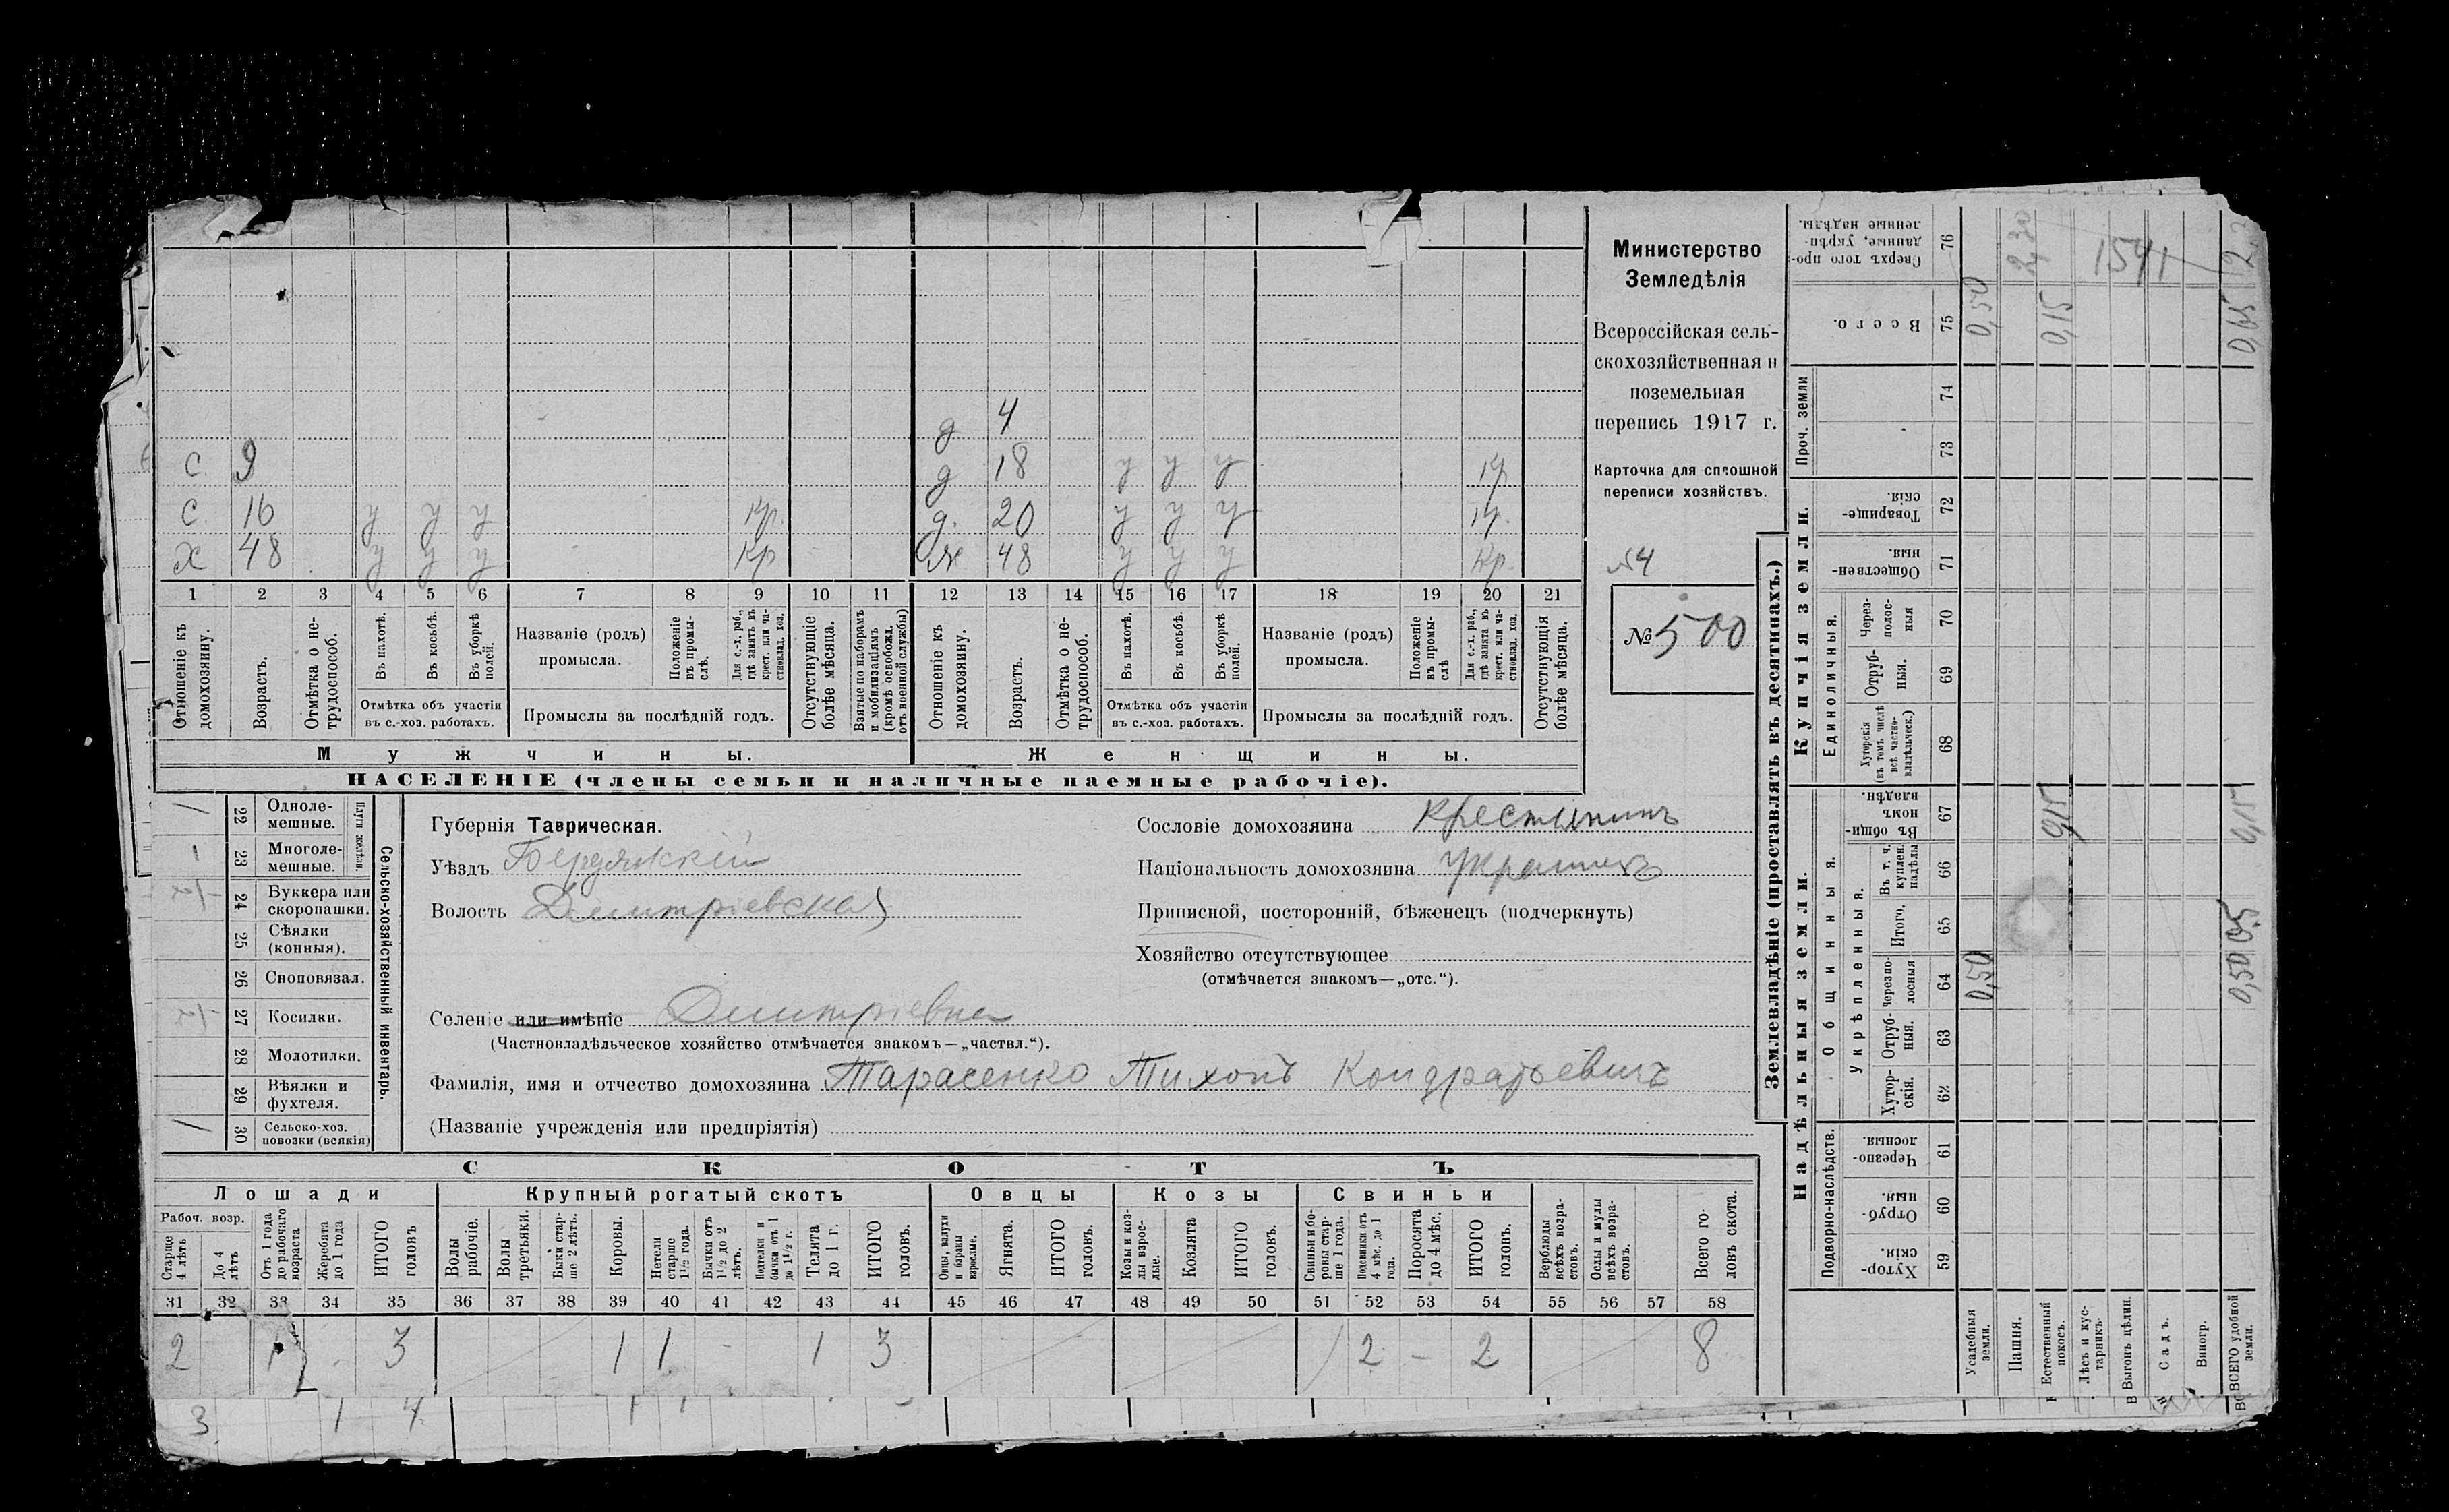 Министерство
Земледѣлія
Всероссійская сель-
скохозяйственная и
поземельная
перепись 1917 г.
Карточка для сплошной
переписи хозяйствъ.
54
№ 500
д 4
с 9 д 18 у у у кр
с 16 у у у кр. д. 20 у у у кр.
х 48 у у у кр ж 48 у у у кр.
1 2 3 4 5 6 7 8 9 10 11 12 13 14 15 16 17 18 19 20 21
Отношеніе къ домохозяину.
Возрастъ.
Отмѣтка о не-трудоспособ.
Въ пахотѣ.
Въ косьбѣ.
Въ уборкѣ полей.
Отмѣтка объ участіи
въ с.-хоз. работахъ.
Названіе (родъ)
промысла.
Положеніе въ промы-слѣ.
Для с.-х. раб., гдѣ занять въ крест. или ча-стновлад. хоз.
Промыслы за послѣдній годъ.
Отсутствующіе болѣе мѣсяца.
Взятые по наборамъ и мобилизаціямъ (кромѣ освобожд. отъ военной службы)
Отношеніе къ домохозяину.
Возрастъ.
Отмѣтка о не-трудоспособ.
Въ пахотѣ.
Въ косьбѣ.
Въ уборкѣ полей.
Отмѣтка объ участіи
въ с.-хоз. работахъ.
Названіе (родъ)
промысла.
Положеніе въ промы-слѣ
Для с.-х. раб., гдѣ занята въ крест. или ча-стновлад. хоз.
Промыслы за послѣдній годъ.
Отсутствующія болѣе мѣсяца.
Мужчины. Женщины.
НАСЕЛЕНІЕ (члены семьи и наличные наемные рабочіе).
Сельско-хозяйственный инвентарь.
Плуги желѣзн.
/ 22 Одноле-мешные.
1 23 Многоле-мешные.
24 Буккера или скоропашки.
25 Сѣялки (конныя).
26 Сноповязал.
27 Косилки.
28 Молотилки.
29 Вѣялки и фухтеля.
/ 30 Сельско-хоз. повозки (всякія)
Губернія Таврическая.
Уѣздъ Бердянскій
Волость Дмитріевская
Сословіе домохозяина крестьянинъ
Національность домохозяина украинецъ
Приписной, посторонній, бѣженецъ (подчеркнуть)
Хозяйство отсутствующее
(отмѣчается знакомъ—„отс.“).
Селеніе или имѣніе Дмитріевка
(Частновладѣльческое хозяйство отмѣчается знакомъ—„частвл.“).
Фамилія, имя и отчество домохозяина Тарасенко Тихонъ Кондратьевичъ
(Названіе учрежденія или предпріятія)
СКОТЪ
Лошади Крупный рогатый скотъ Овцы Козы Свиньи
Рабоч. возр.
Старше 4 лѣтъ
До 4 лѣтъ
Отъ 1 года до рабочаго возраста
Жеребята до 1 года
ИТОГО головъ
Волы рабочіе.
Волы третьяки.
Быки стар-ше 2 лѣтъ.
Коровы.
Нетели старше 1½ года.
Бычки отъ 1½ до 2 лѣтъ.
Подтелки и бычки отъ 1 до 1½ г.
Телята до 1 г.
ИТОГО головъ.
Овцы, валухи и бараны взрослые.
Ягнята.
ИТОГО головъ.
Козы и коз-лы взрос-лые.
Козлята
ИТОГО головъ.
Свиньи и бо-ровы стар-ше 1 года.
Подсвинки отъ 4 мѣс. до 1 года.
Поросята до 4 мѣс.
ИТОГО головъ.
Верблюды всѣхъ возра-стовъ.
Ослы и мулы всѣхъ возра-стовъ.
Всего го-ловъ скота.
31 32 33 34 35 36 37 38 39 40 41 42 43 44 45 46 47 48 49 50 51 52 53 54 55 56 57 58
2 1 3 1 1 - 1 3 / 2 - 2 8
3 1 4 1 1
Землевладѣніе (проставлять въ десятинахъ.)
Надѣльныя земли. Купчія земли.
Подворно-наслѣдств.
Общинныя.
Укрѣпленныя.
Единоличныя.
Проч. земли
Хутор-скія. 59
Отруб-ныя. 60
Черезпо-лосныя 61
Хутор-скія. 62
Отруб-ныя. 63
Черезпо-лосныя 64
Итого. 65
Въ т. ч. куплен. надѣлы 66
Въ общин-номъ владѣн. 67
Хуторскія (въ томъ числѣ всѣ частно-владѣльческ.) 68
Отруб-ныя. 69
Через-полос-ныя 70
Обществен-ныя 71
Товарище-скія. 72
73
74
Всего. 75
Сверхъ того про-данные, укрѣп-ленные надѣлы. 76
Усадебныя земли. 0,50 0,50
Пашня. 2,30
Естественный покосъ. 0,15 0,15
Лѣсъ и кус-тарникъ.
1541
Выгонъ цѣлин.
Садъ.
Виногр.
ВСЕГО удобной земли. 0,50 0,15 0,65